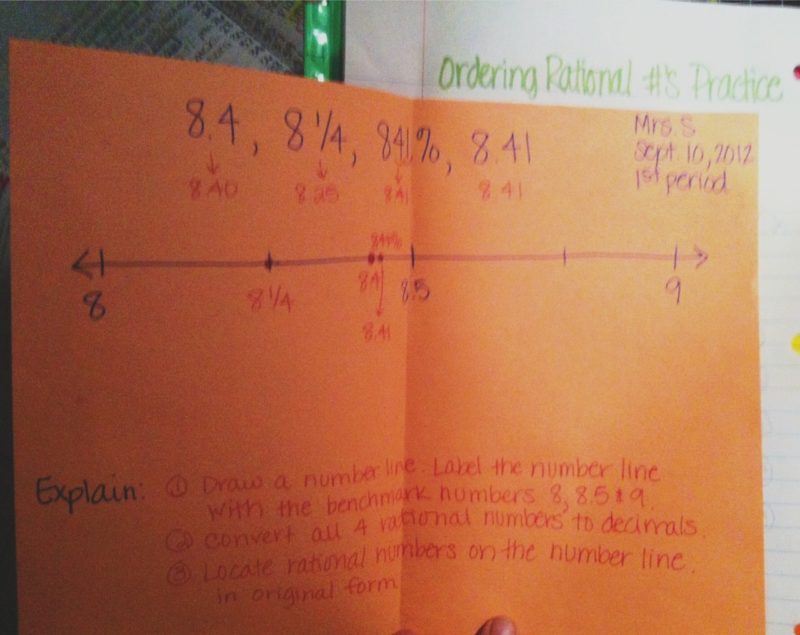 Ordering Rational #'s Practice
Mrs. S
Sept. 10, 2012
1st period
8.4, 8 1/4, 841%, 8.41
8.40 8.25 8.41 8.41
841%
8 8 1/4 8.4 8.5 9
8.41
Explain: ① Draw a number line. Label the number line
with the benchmark numbers 8, 8.5 & 9.
② Convert all 4 rational numbers to decimals.
③ Locate rational numbers on the number line.
in original form